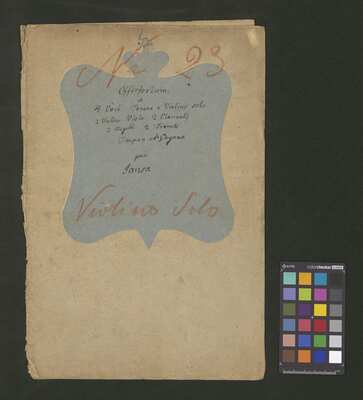 No 23
Offertorium
a
4 Voci Tenore e Violino solo
2 Violini Viola 2 Clarinetti
2 Fagotti 2 Trombe
Timpani ed Organo
par
Jansa
Violino Solo